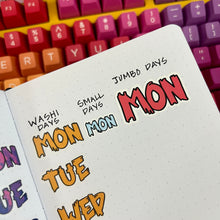 JUMBO DAYS
WASHI DAYS
SMALL DAYS
MON MON MON
TUE
WED
ON
UE
E R T Y U